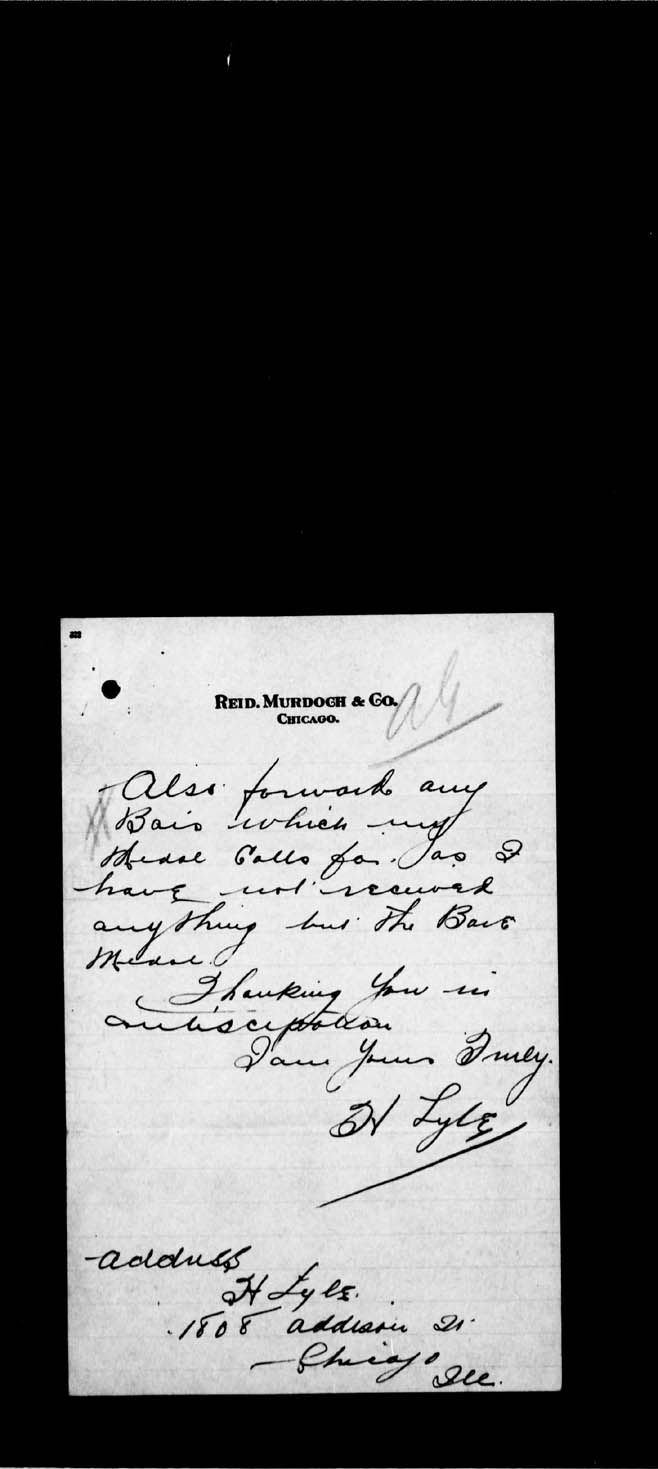 REID, MURDOCH & CO.
CHICAGO.
Also forward any
Bars which my
Medal Calls for. as I
have not received
anything but the Bare
Medal.
Thanking You in
antiscipation
I am Yours Truly.
H Lyle
address
H Lyle.
1808 addison St.
Chicago
Ill.